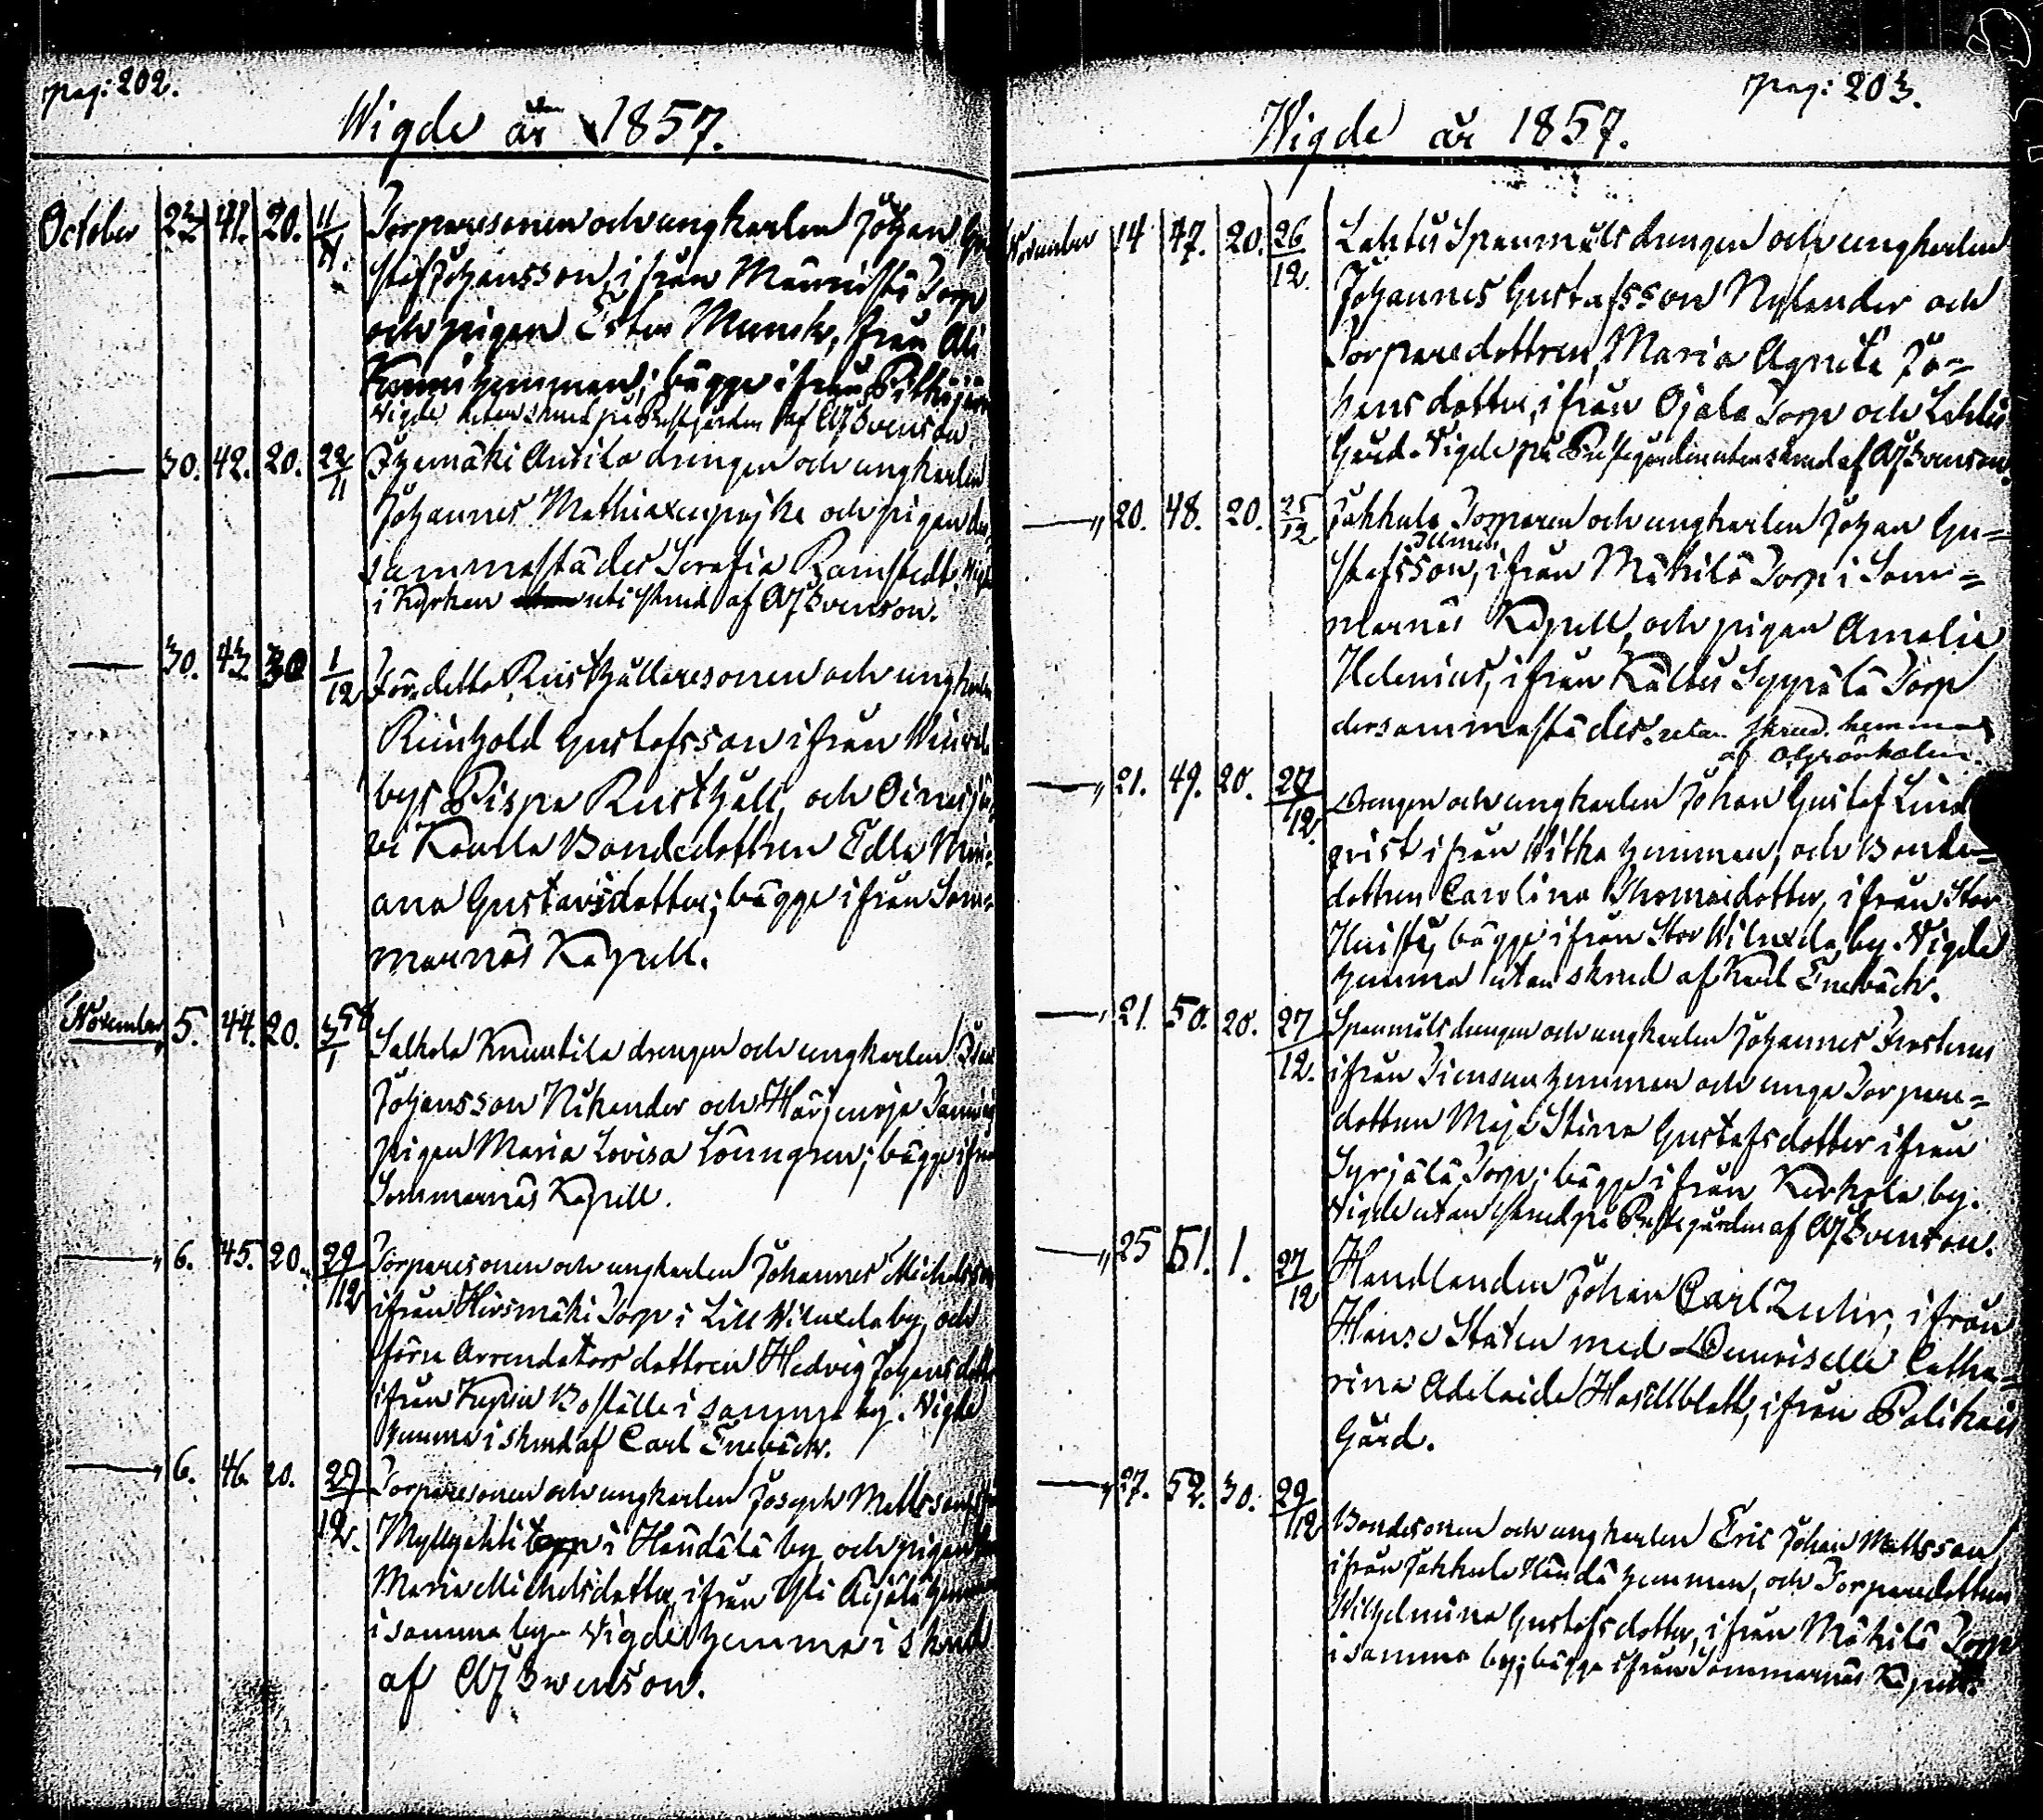 pag: 202.
Wigde år 1857.
October 23 41. 20. 4/11. Torparesonen och ungkarlen Johan Gu
staf Johansson, ifrån Männistö Torp
och pigan Ester Munck, ifrån Ali
hemman; bägge ifrån Pitkäjär
Wigde utan skrud på Prestgården af AJ Svenson.
30. 42. 20. 22/11 Isomäki Anttila drängen och ungkarlen
Johannes Mathiaxenpojke och pigan der
sammastädes Serafia Ramstedt. Wigde
i Kyrkan uti skrud af AJ Svenson.
30. 43. 30 1/12 Förredetta Rusthållaresonen och ungkarlen
Reinhold Gustafsson ifrån
bys Pispa Rusthåll, och Oinasjär-
vi Kaulla Bondedottren Edla Mari-
ana Gustavsdotter; bägge ifrån Som-
marnäs Kapell.
November 5. 44. 20. 3/1 58 Salkola Knuutila drängen och ungkarlen
Johansson Nikander och Härjänoja
pigan Maria Lovisa Lönngren; bägge ifrån
Sommarnäs Kapell.
6. 45. 20. 29/12 Torparesonen och ungkarlen Johannes Michelsson
ifrån Hirsmäki Torp i Lill Wiluxela by, och
förre Arrendators dottren Hedvig Johansdotter
ifrån Boställe i samma by. Wigde
hemma i skrud af Carl Enebäck.
6. 46. 20. 29/12. Torparesonen och ungkarlen Joseph Mattsson
Myllylahti torp i by och pigan
Maria Michelsdotter, ifrån Yli hemman
i samma by. Wigde hemma i skrud
af AJ Swenson.
pag: 203.
Wigde år 1857.
November 14 47. 20. 26/12. Lahtis Spanmåls drängen och ungkarlen
Johannes Gustafsson Nylander och
Torparedottren, Maria Agneta Jo=
hansdotter, ifrån Ojala Torp och Lahtis
Gård. Wigde på Prestgården utan skrud af AJ Svenson.
20. 48. 20. 25/12 Jakkula Torparen och ungkarlen Johan Gu=
stafsson, ifrån Mäkilä Torp i Som=
marnäs Kapell, och pigan Amalia
Helenius, ifrån Sippälä Torp
dersammastädes. utan skrud. hemma
af O Grönholm.
21. 49. 20. 27/12. Drängen och ungkarlen Johan Gustaf Lind
qvist ifrån hemman, och Bonde=
dottren Carolina Thomasdotter, ifrån Stor
bägge ifrån Stor Wiluxela by. Wigde
hemma utan skrud af Karl Enebäck.
21. 50. 20. 27/12. Spanmåls drängen och ungkarlen Johannes
ifrån hemman och unga Torpare=
dottren Maja Stina Gustafsdotter ifrån
Syrjälä Torp; bägge ifrån Kerkola by.
Wigde utan skrud på Prestgården af AJ Svenson.
25 51. 1. 27/12 Handlanden Johan Carl ifrån
Hanse Staten med Demoiselle Catha=
rina Adelaide Hasselblatt, ifrån Palikais
Gård.
27. 52. 30. 29/12 Bondesonen och ungkarlen Eric Johan Mattsson
ifrån Jakkula hemman, och Torparedottren
Wilhelmina Gustafsdotter, ifrån Mäkilä Torp
i samma by; bägge ifrån Sommarnäs Kapell.